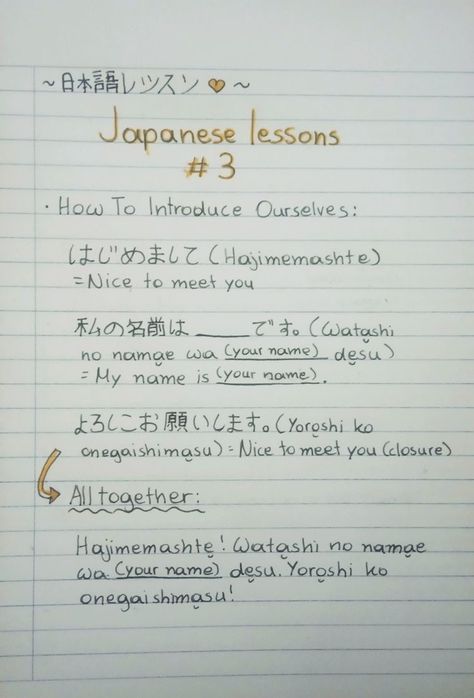 ~日本語レッスン ♡ ~
Japanese lessons
# 3
· How To Introduce Ourselves:
はじめまして (Hajimemashte)
= Nice to meet you
私の名前は ____ です。(Watashi
no namae wa (your name) desu)
= My name is (your name).
よろしこお願いします。(Yoroshi ko
onegaishimasu) = Nice to meet you (closure)
All together:
Hajimemashte! Watashi no namae
wa (your name) desu. Yoroshi ko
onegaishimasu!